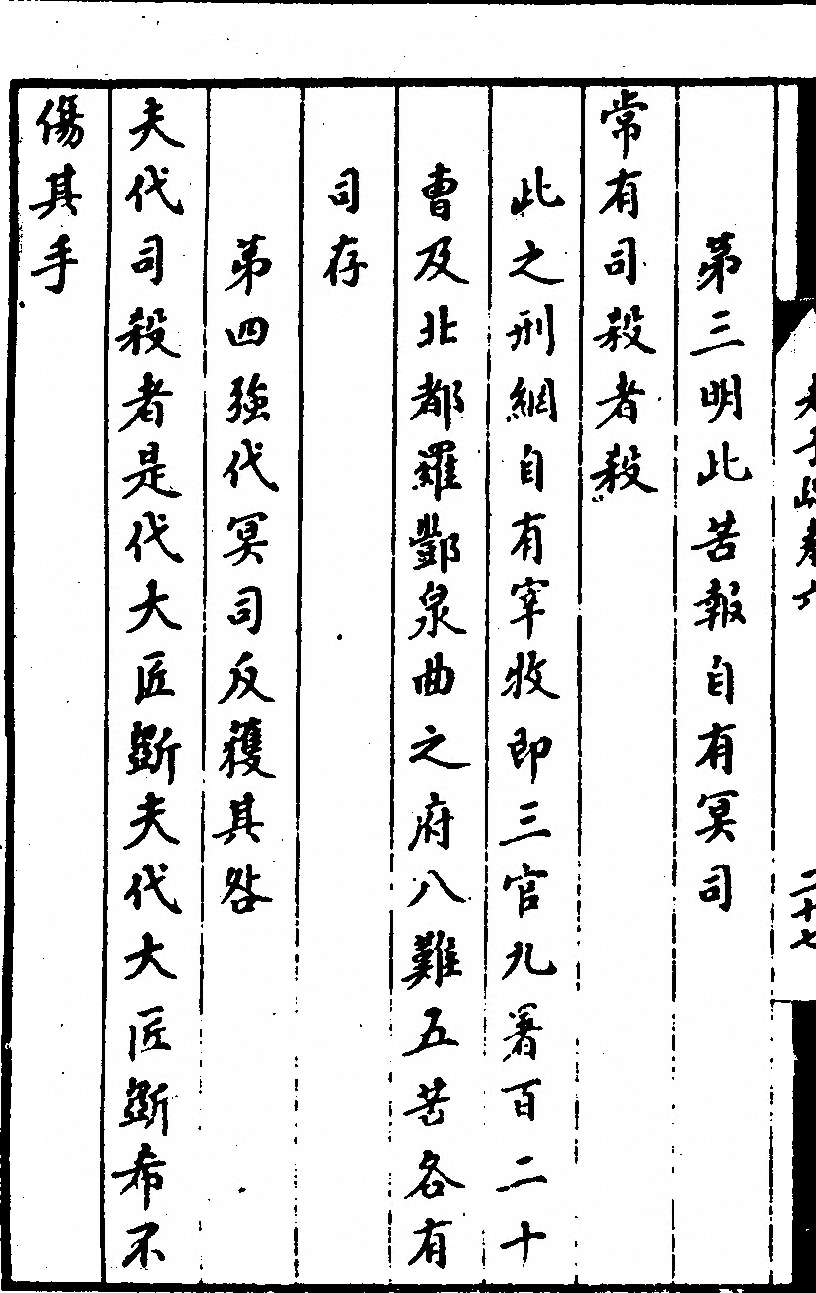 第三明此苦報自有冥司
常有司殺者殺
此之刑網自有宰牧即三官九署百二十
曹及北都羅酆泉曲之府八難五苦各有
司存
第四強代冥司反獲其咎
夫代司殺者是代大匠斲夫代大匠斲希不
傷其手
二十七